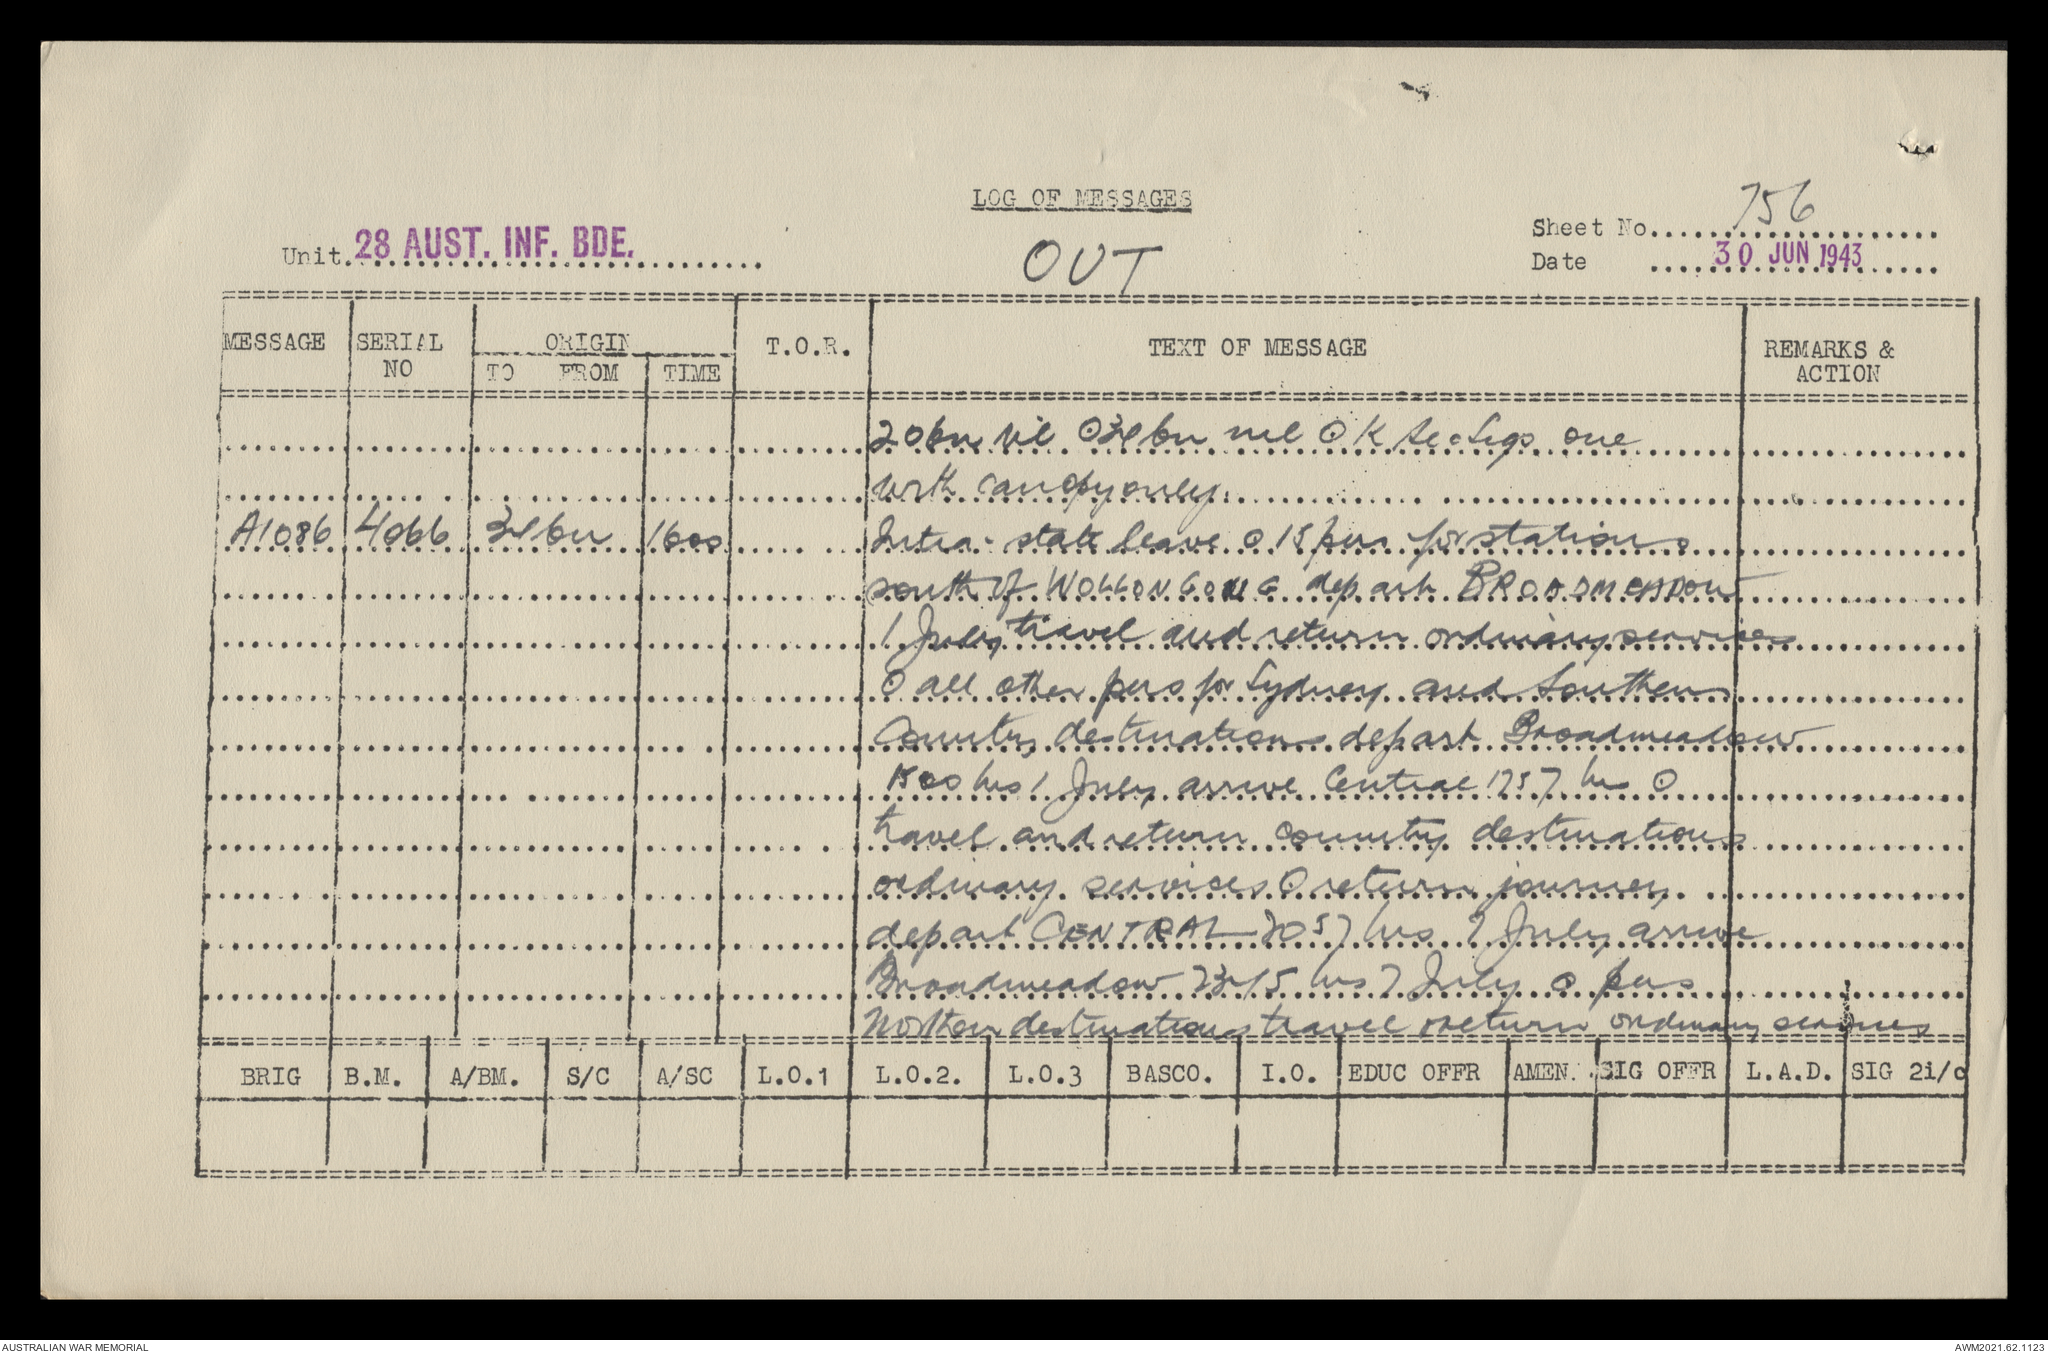 LOG OF MESSAGES
Sheet No 756
Unit 28 AUST. INF. BDE.
OUT
Date 30 JUN 1943
MESSAGE SERIAL NO ORIGIN TO FROM TIME T.O.R. TEXT OF MESSAGE REMARKS & ACTION
20 bn nil ⊙ 34 bn nil ⊙ K Sec Sigs one
with canopy only
A1086 4066 34 bn 1600 Intra-state leave ⊙ 15 pers for stations
south of WOLLONGONG depart BROADMEADOW
1 July travel and return ordinary services
⊙ all other pers for Sydney and Southern
Country destinations depart Broadmeadow
1500 hrs 1 July arrive Central 1757 hrs ⊙
travel and return country destinations
ordinary services ⊙ return journey
depart CENTRAL 2057 hrs 7 July arrive
Broadmeadow 2345 hrs 7 July ⊙ pers
Northern destinations travel return ordinary services
BRIG B.M. A/BM. S/C A/SC L.O.1 L.O.2. L.O.3 BASCO. I.O. EDUC OFFR AMEN. SIG OFFR L.A.D. SIG 2i/c
AUSTRALIAN WAR MEMORIAL
AWM2021.62.1123